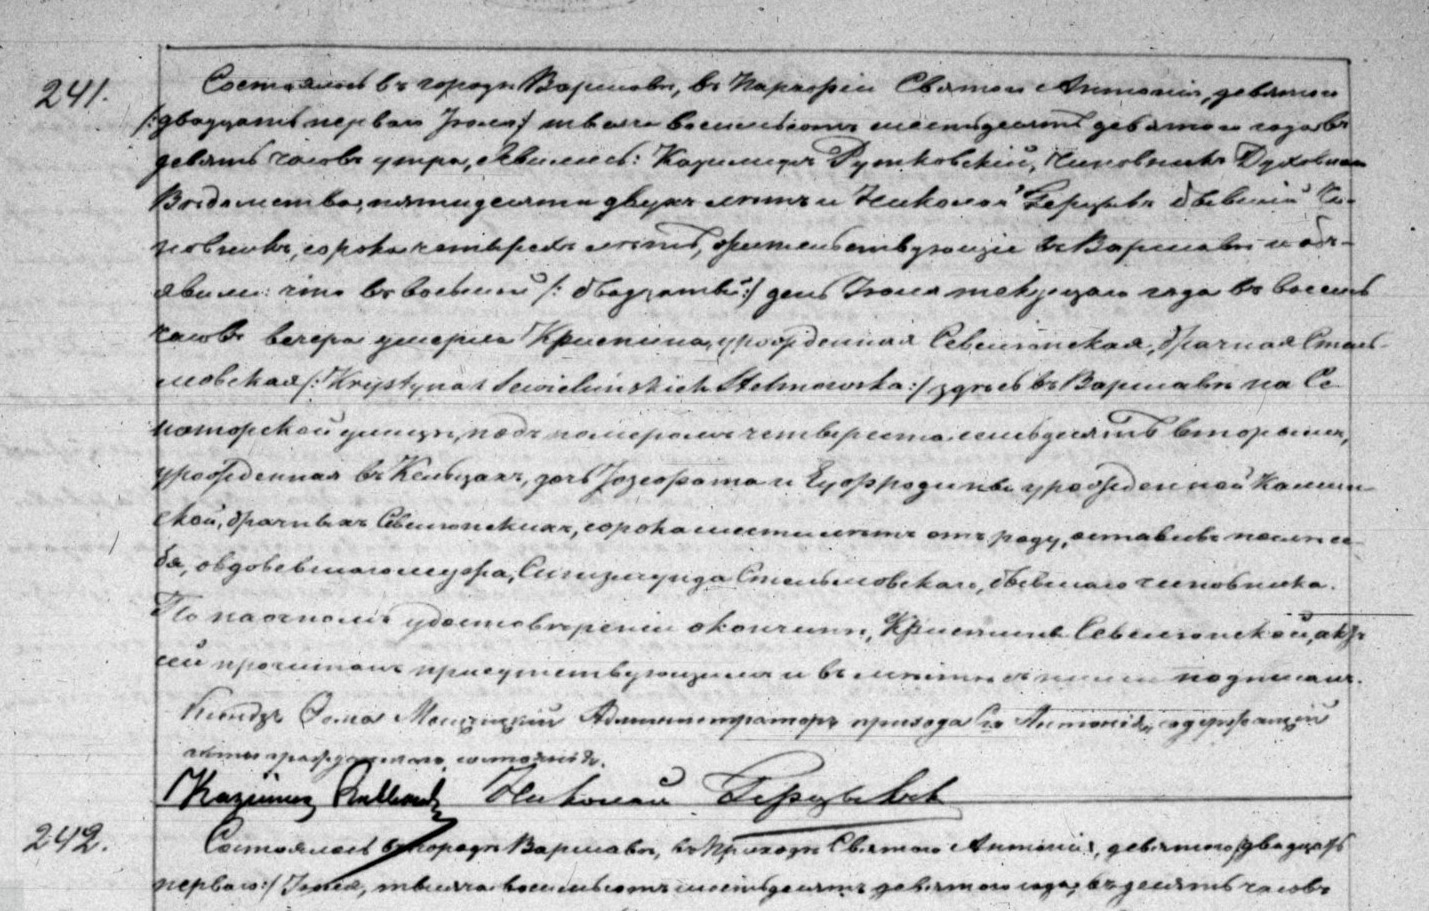 241.
Состоялось въ городѣ Варшавѣ, въ Парафіи Святого Антонія, девятого
/:двадцать перваго Іюля:/ тысяча восемьсотъ шестьдесятъ девятого года въ
девять часовъ утра, Явились: Казимиръ Рутковскій, Чиновникъ Духовнаго
Вѣдомства, пятидесяти двухъ лѣтъ и Николай бывшій Чи-
новникъ, сорока четырехъ лѣтъ, жительствующіе въ Варшавѣ и объ-
явили: что въ восьмый /: двадцатый:/ день Іюля текущаго года въ восемь
часовъ вечера умерла Кристина, урожденная Севелинская, брачная Стель-
мовская /:Krystyna z Sewielińskich Stelmowska:/ здѣсь въ Варшавѣ на Се-
наторской улицы, подъ номеромъ четыреста семьдесятъ вторымъ,
урожденная въ Кельцахъ, дочь Іозефата и Еуфрозины урожденной
ской, брачныхъ Севелинскихъ, сорока шести лѣтъ отъ роду, оставивъ послѣ се-
бя, овдовевшаго мужа, Сигизмунда Стельмовскаго, бывшаго чиновника.
По наочномъ удостовѣреніи о кончинѣ, Кристины Севелинской, актъ
сей прочитанъ присутствующимъ и въ мѣстѣ съ ними подписанъ.
Ксендзъ Администраторъ прихода Св. Антонія, содержащій
акты гражданскаго состоянія.
Kazimierz Rutkowski Николай
242.
Состоялось въ городѣ Варшавѣ, въ Приходѣ Святого Антонія, девятого /:двадцать
перваго:/ Іюля, тысяча восемьсотъ шестьдесятъ девятого года, въ десять часовъ